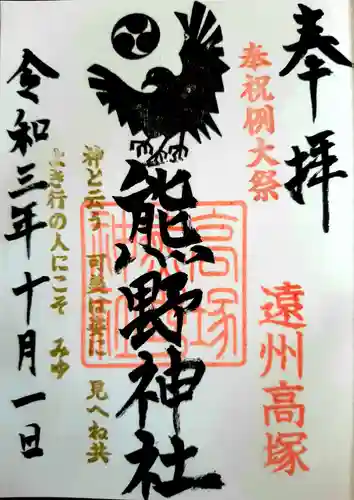 奉拝
奉祝例大祭
遠州高塚
熊野神社
高塚
神と云う 可美は姿に 見へね共
よき行の人にこそ みゆ
令和三年十月一日